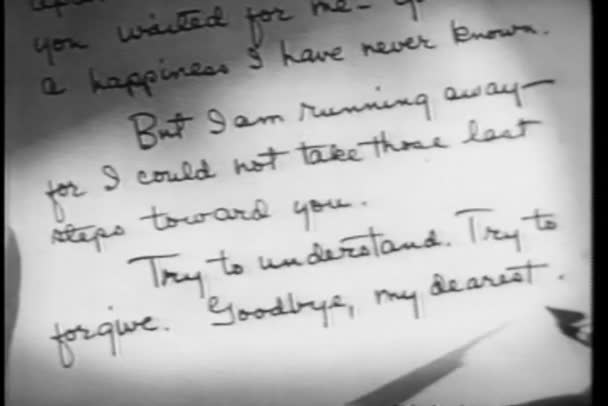 you waited for me-
a happiness I have never known.
But I am running away—
for I could not take those last
steps toward you.
Try to understand. Try to
forgive. Goodbye, my dearest.